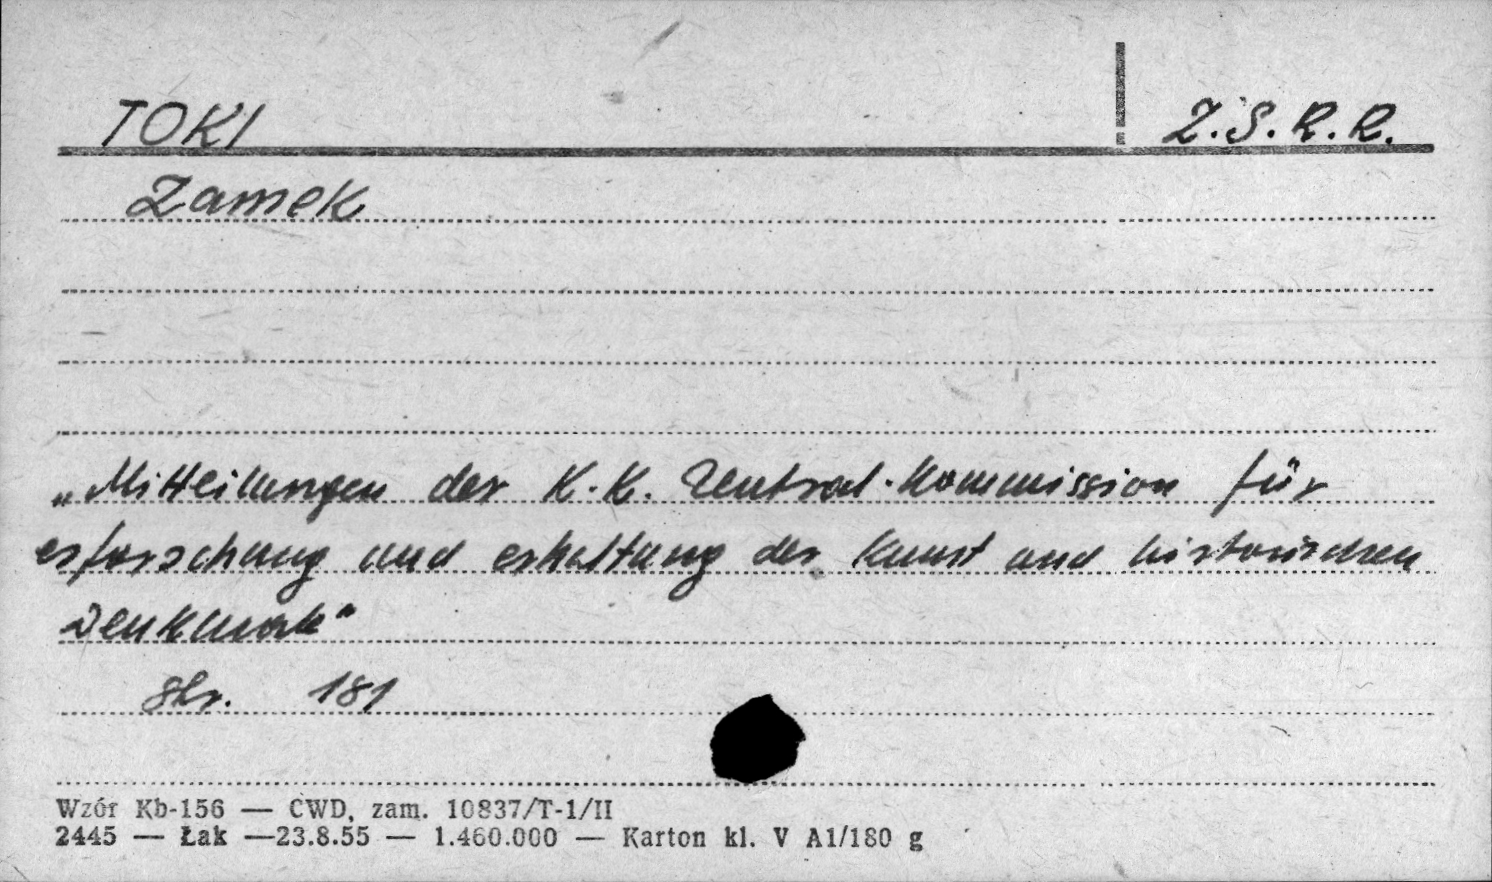 TOKI
Z.S.R.R.
Zamek
„Mitteilungen der K.K. Zentral-Kommission für
erforschung und erhaltung der Kunst und historischen
Denkmale"
str. 181
Wzór Kb-156 — CWD, zam. 10837/T-1/II
2445 — Łak —23.8.55 — 1.460.000 — Karton kl. V A1/180 g